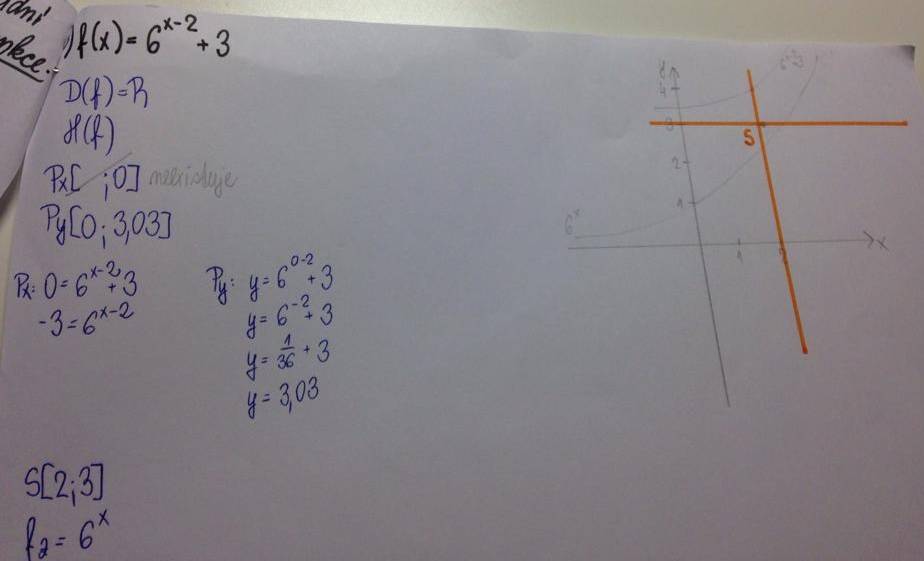 dní
nkce.
)f(x)= 6^{x-2} + 3
D(f)=R
H(f)
Px[ ;0] neexistuje
Py[0; 3,03]
Px: 0=6^{x-2}+3
-3=6^{x-2}
Py: y=6^{0-2}+3
y=6^{-2}+3
y=1/36+3
y=3,03
S[2;3]
f2=6^x
y
4
3
2
1
6^x
6^{x-2}+3
S
1
2
x